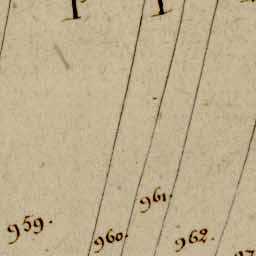 961.
959.
960.
962.